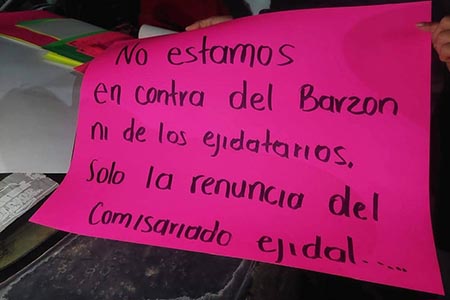 No estamos
en contra del Barzon
ni de los ejidatarios.
Solo la renuncia del
Comisariado ejidal.....